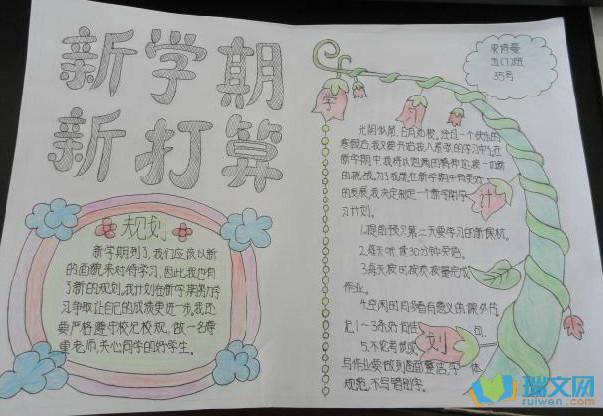 新学期
新打算
规划
新学期到了,我们应该以新
的面貌来对待学习,因此,我也有
了新的规划。我计划在新学期努力学
习,争取让自己的成绩更进一步。我还
要严格遵守校纪校规,做一名尊
重老师,关心同学的好学生。
学
习
计
划
35号
光阴似箭,日月如梭。经过一个快乐的
寒假后,我又要开始投入紧张的学习中了。在
新学期中,我将以饱满的精神迎接一切新
的挑战。为了我能在新学期中有更好
的发展,我决定制定一个新学期学
习计划。
1.提前预习第二天要学习的新课材。
2.每天听读30分钟英语。
3.每天按时按质按量完成
作业。
4.空闲的时多看有意义的课外片,
记1~3条好词佳句。
5.不论考试或
写作业要做到画面整洁,字体
规范,不写错别字。
瑞文网
ruiwen.com